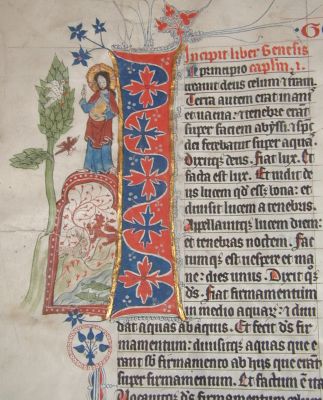 Incipit liber Genesis
N principio caplm .1.
creauit deus celum ⁊ terram
Terra autem erat inanis
et uacua: ⁊ tenebre erant
super faciem abyssi: ⁊ sps
ferebatur super aquas
Dixitq; deus. Fiat lux. Et
facta est lux. Et uidit de
us lucem qd esset bona: et
diuisit lucem a tenebris
Appellauitq; lucem diem:
et tenebras noctem. Fac
tumq; est uespere et ma
ne: dies unus. Dixit q;
ds. Fiat firmamentum
in medio aquarum: ⁊ diui
dat aquas ab aquis. Et fecit ds firma
mentum: diuisitq; aquas que e
rant sub firmamento ab hijs que erant
super firmamentum. Et factum est ita
Vocauitq; ds firmamentum